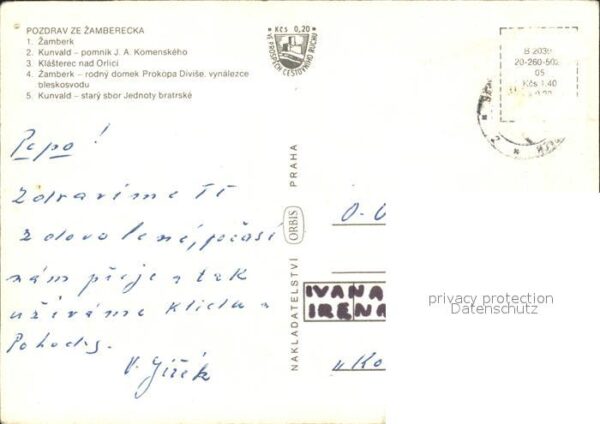 POZDRAV ZE ŽAMBERECKA
1. Žamberk
2. Kunvald – pomník J. A. Komenského
3. Klášterec nad Orlicí
4. Žamberk – rodný domek Prokopa Diviše, vynálezce
bleskosvodu
5. Kunvald – starý sbor Jednoty bratrské
Kčs 0,20
VE PROSPĚCH CESTOVNÍHO RUCHU
20-260-502
05
Kčs 1,40
Pepo!
Zdravíme Tě
z dovolené, počasí
nám přeje a tak
užíváme klidu a
Pohody.
V. Jiřík
NAKLADATELSTVÍ ORBIS PRAHA
IVANA
IRENA
„Ko
privacy protection
Datenschutz